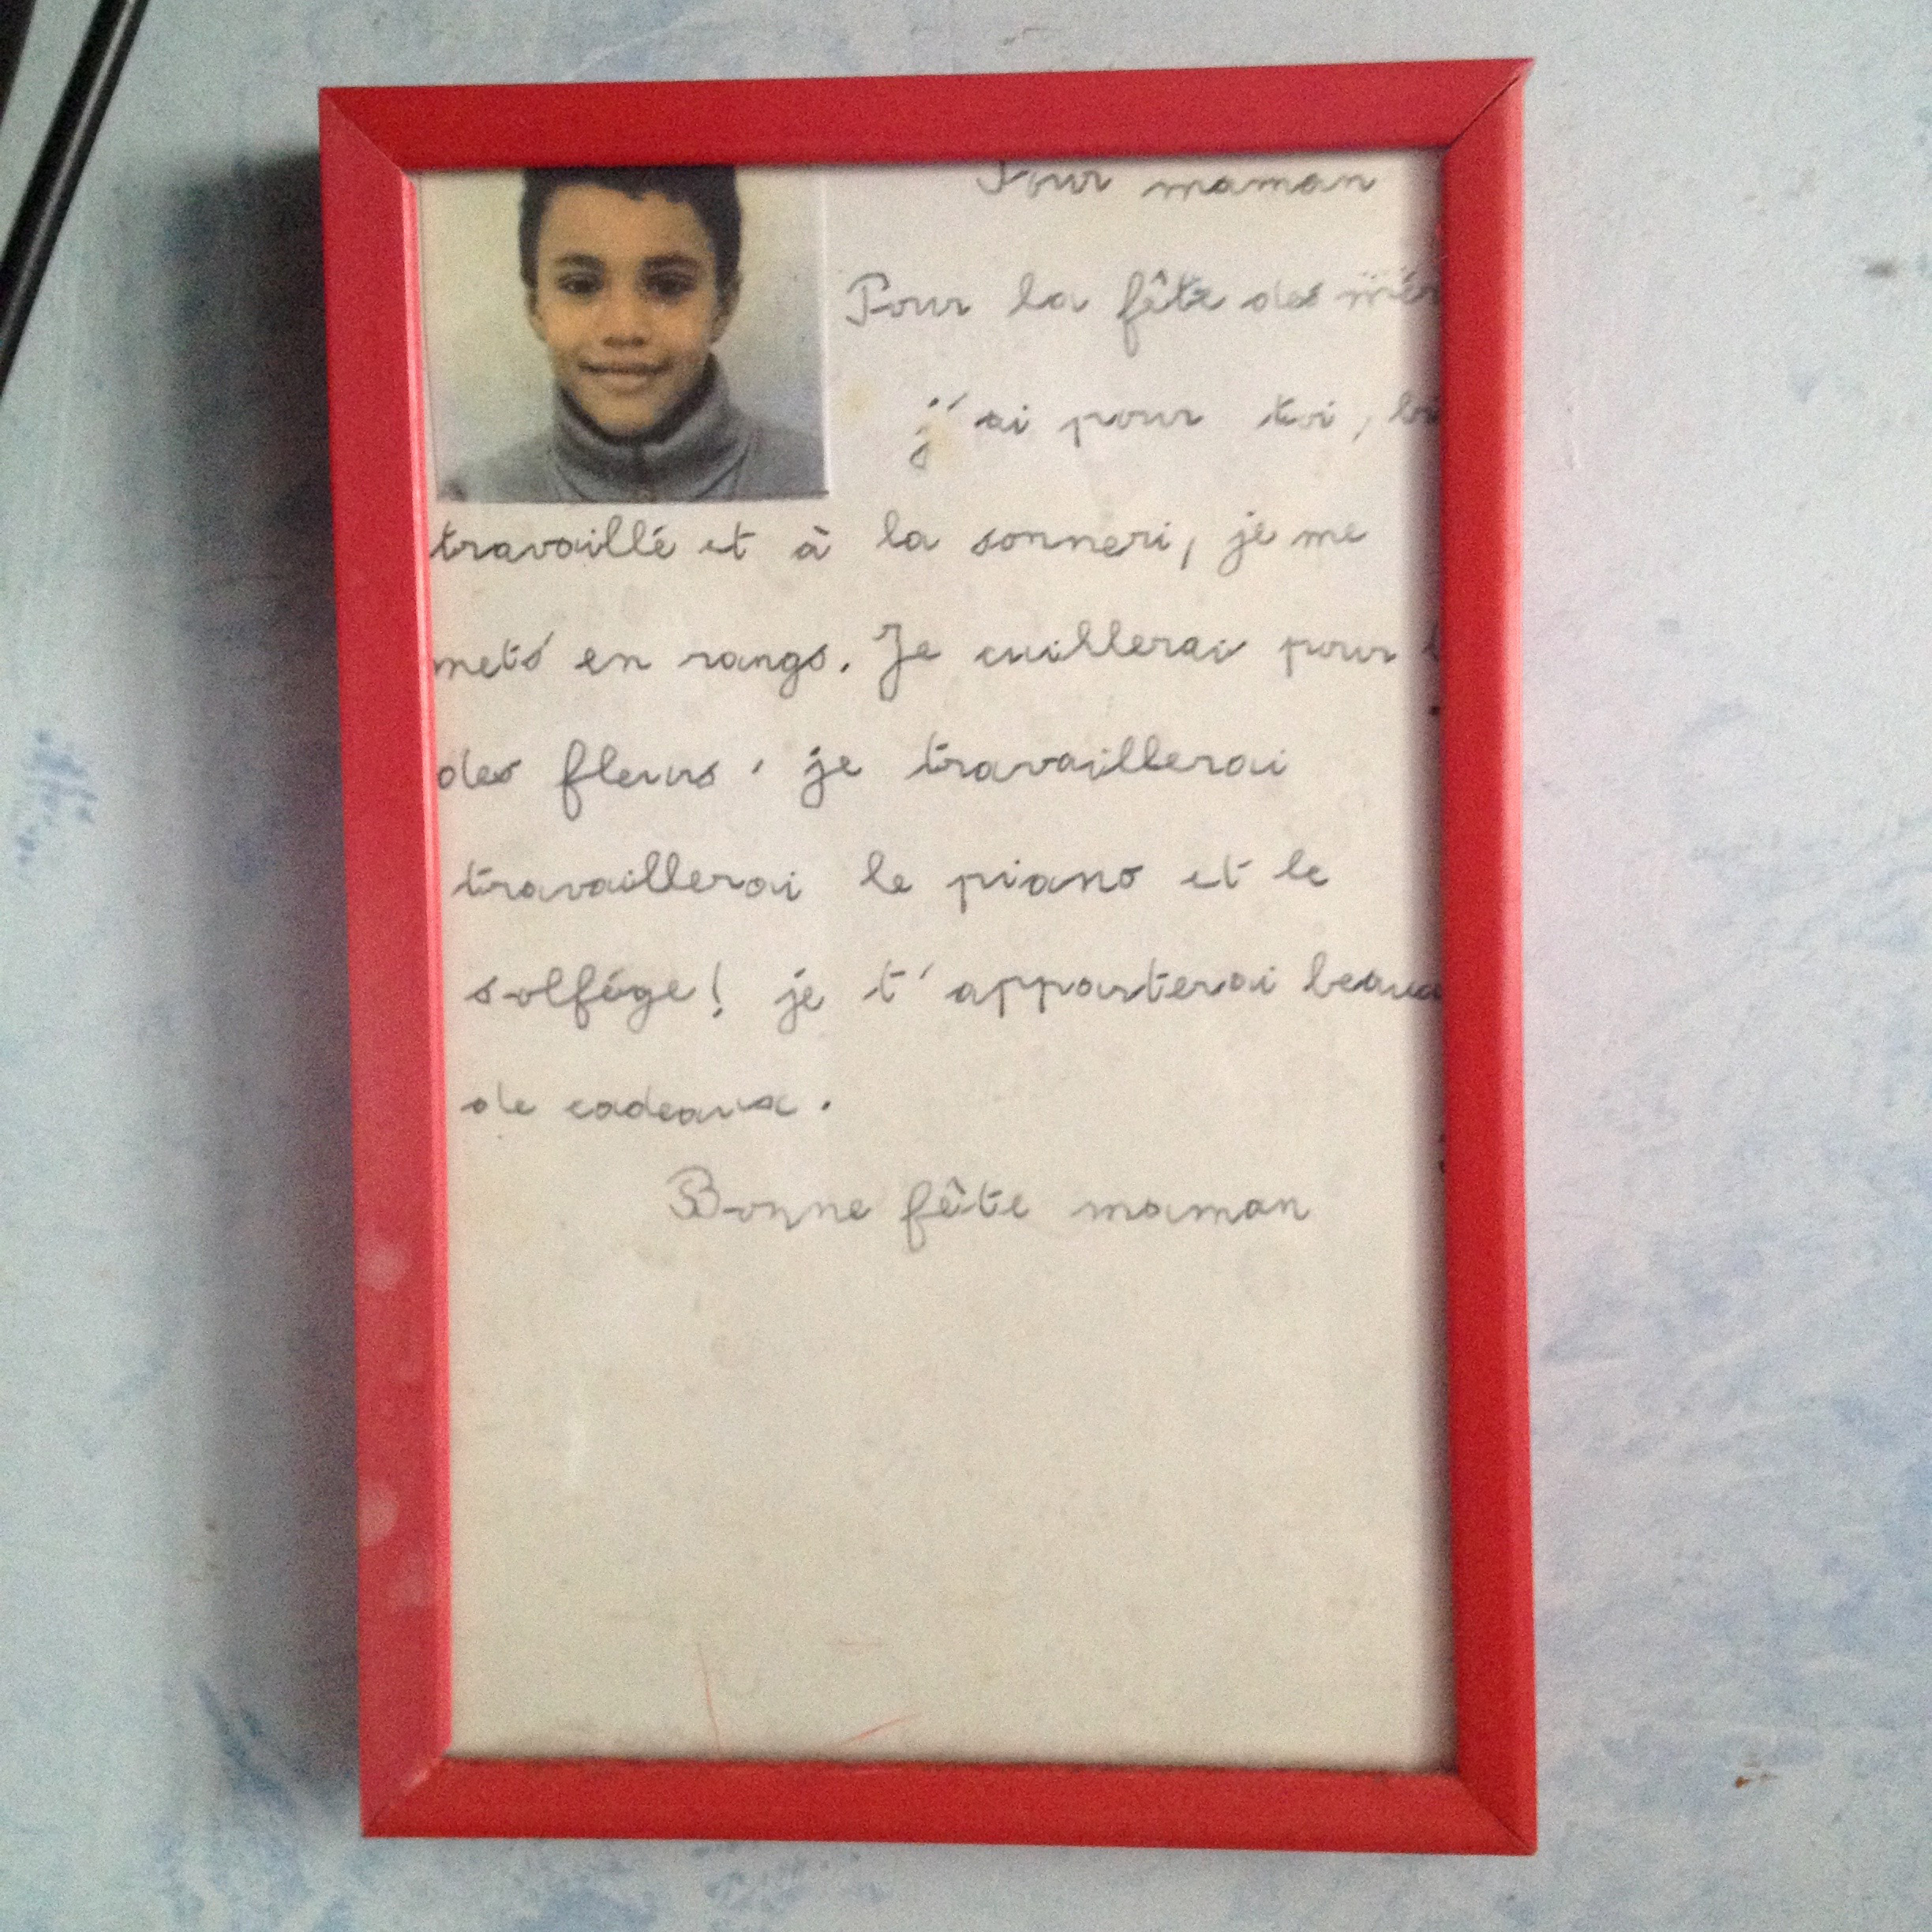 Pour maman
Pour la fête des mèr
j'ai pour toi, bi
travaillé et à la sonneri, je me
mets en rangs. Je cuillerai pour
des fleurs, je travaillerai
travaillerai le piano et le
solfége! je t'apporterai beauc
de cadeaux.
Bonne fête maman